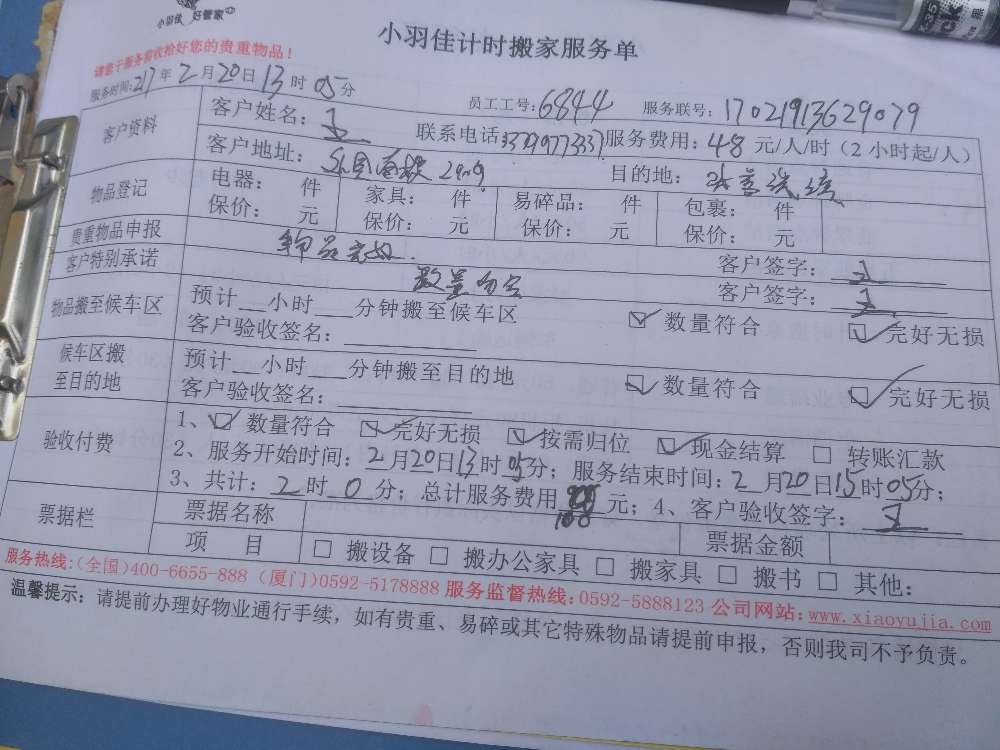 小羽佳 好管家
小羽佳计时搬家服务单
请您于服务前收拾好您的贵重物品！
服务时间:217年2月20日13时05分 员工工号:6844 服务联号:17021913629079
客户资料 客户姓名：王 联系电话 服务费用：48元/人/时（2小时起/人）
客户地址： 目的地：
物品登记 电器： 件 家具： 件 易碎品： 件 包裹： 件
保价： 元 保价： 元 保价： 元 保价： 元
贵重物品申报 物品完好. 客户签字：王
客户特别承诺 数量 客户签字：王
物品搬至候车区 预计__小时___分钟搬至候车区 ☑数量符合 ☑完好无损
客户验收签名：
候车区搬至目的地 预计__小时___分钟搬至目的地 ☑数量符合 ☑完好无损
客户验收签名：
验收付费 1、☑数量符合 ☑完好无损 ☑按需归位 ☑现金结算 □转账汇款
2、服务开始时间：2月20日13时05分；服务结束时间：2月20日15时05分；
3、共计：2时0分；总计服务费用 元；4、客户验收签字：王
108
票据栏 票据名称 票据金额
项 目 □搬设备 □搬办公家具 □搬家具 □搬书 □其他：
服务热线:(全国)400-6655-888 (厦门)0592-5178888 服务监督热线:0592-5888123 公司网站:www.xiaoyujia.com
温馨提示：请提前办理好物业通行手续，如有贵重、易碎或其它特殊物品请提前申报，否则我司不予负责。